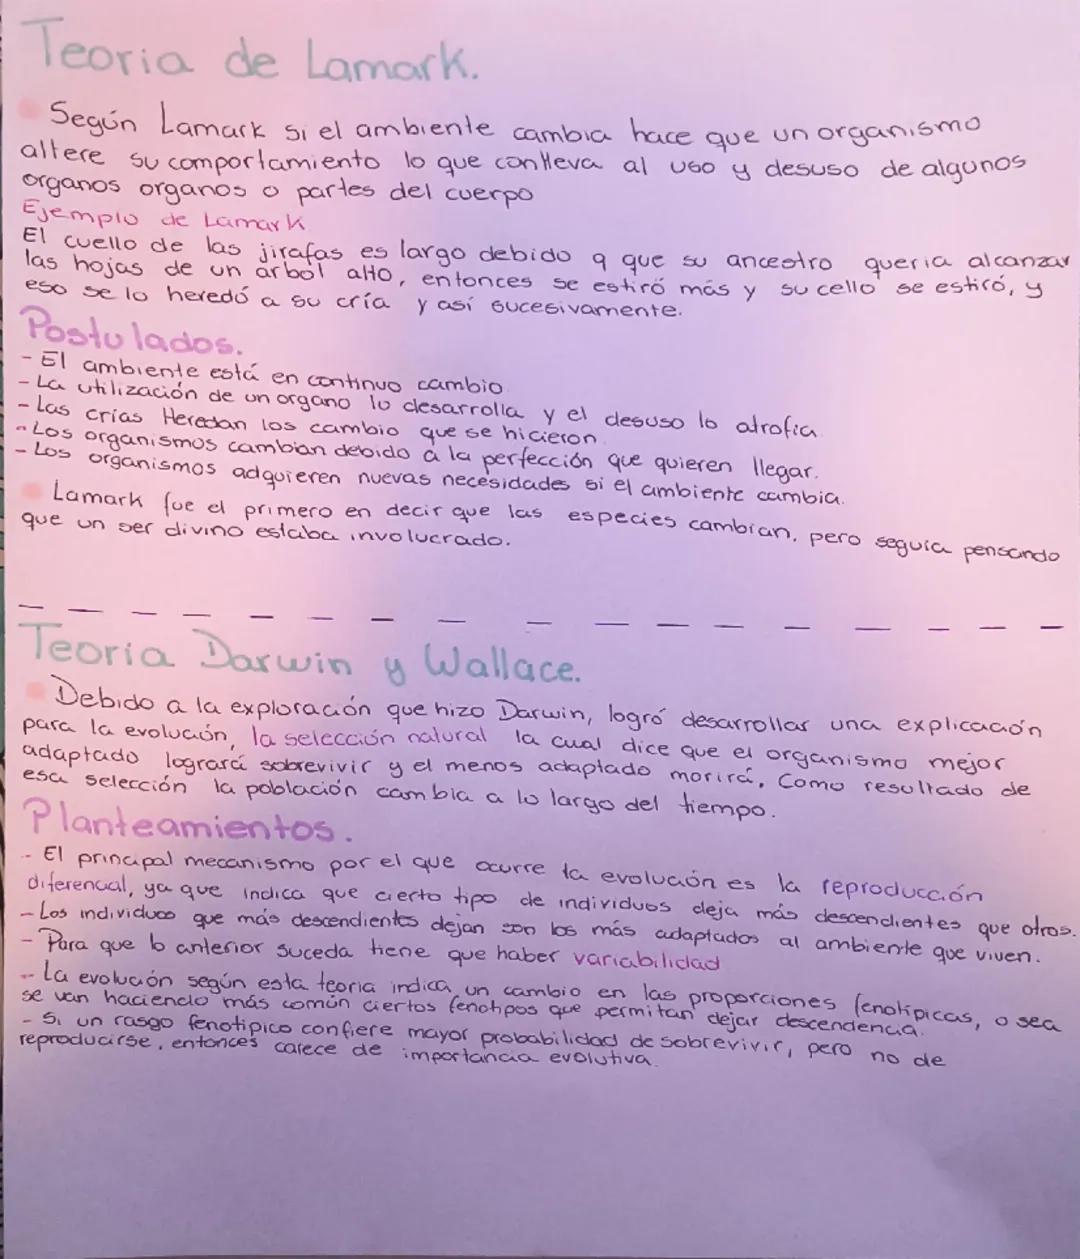 Teoria de Lamark.
Según Lamark si el ambiente cambia hace que un organismo
altere su comportamiento lo que conlleva al uso y desuso de algunos
organos organos o partes del cuerpo
Ejemplo de Lamark
El cuello de las jirafas es largo debido a que su ancestro queria alcanzar
las hojas de un arbol alto, entonces se estiró más y su cello se estiró, y
eso se lo heredó a su cría y así sucesivamente.
Postulados.
- El ambiente está en continuo cambio
- La utilización de un organo lo desarrolla y el desuso lo atrofia
- Las crías Heredan los cambio que se hicieron.
- Los organismos cambian debido a la perfección que quieren llegar.
- Los organismos adquieren nuevas necesidades si el ambiente cambia.
Lamark fue el primero en decir que las especies cambian, pero seguía pensando
que un ser divino estaba involucrado.
Teoria Darwin y Wallace.
Debido a la exploración que hizo Darwin, logró desarrollar una explicación
para la evolución, la selección natural la cual dice que el organismo mejor
adaptado logrará sobrevivir y el menos adaptado morirá, Como resultado de
esa selección la población cambia a lo largo del tiempo.
Planteamientos.
- El principal mecanismo por el que ocurre la evolución es la reproducción
diferencial, ya que indica que cierto tipo de individuos deja más descendientes que otros.
- Los individuos que más descendientes dejan son los más adaptados al ambiente que viven.
- Para que lo anterior suceda tiene que haber variabilidad
- La evolución según esta teoria indica un cambio en las proporciones fenotipicas, o sea
se van haciendo más común ciertos fenotipos que permitan dejar descendencia.
- Si un rasgo fenotipico confiere mayor probabilidad de sobrevivir, pero no de
reproducirse, entonces carece de importancia evolutiva.